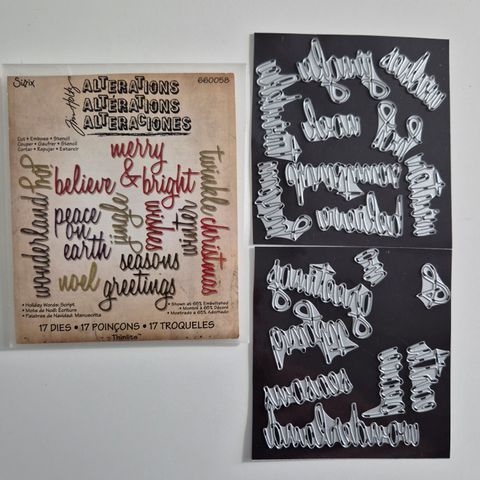 Sizzix
660058
Tim Holtz
ALTERATIONS
ALTERATIONS
ALTERACIONES
Cut • Emboss • Stencil
Couper • Gaufrer • Stencil
Cortar • Repujar • Estarcir
merry
& bright
believe
joy
twinkle
wonderland
peace
on
earth
jingle
wishes
winter
christmas
noel
seasons
greetings
• Holiday Words: Script
• Mots de Noël: Écriture
• Palabras de Navidad: Manuscrita
• Shown at 65% Embellished
• Montré à 65% Décoré
• Mostrado a 65% Adornado
17 DIES • 17 POINÇONS • 17 TROQUELES
Thinlits